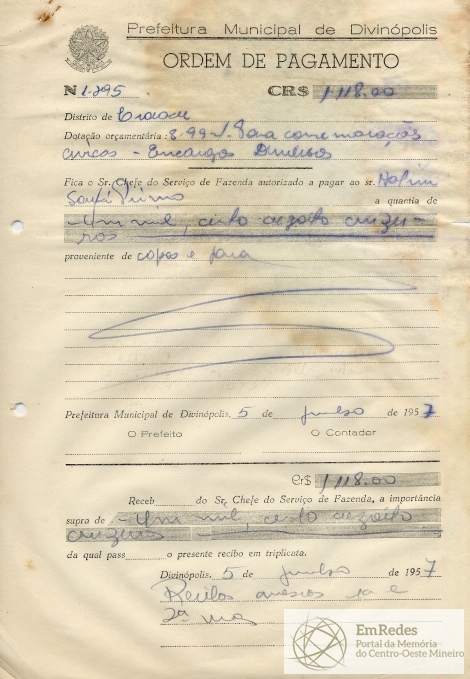 Prefeitura Municipal de Divinópolis
ORDEM DE PAGAMENTO
N 1.295 CR$ 1.118.00
Distrito de
Dotação orçamentária: 8.99 Para comemorações
civicas - Encargos Diversos
Fica o Sr. Chefe do Serviço de Fazenda autorizado a pagar ao sr.
a quantia de
- Um mil, cento dezoito cruzei-
ros
proveniente de copos e para
Prefeitura Municipal de Divinópolis, 5 de junho de 1957
O Prefeito O Contador
Cr$ 1.118.00
Receb do Sr. Chefe do Serviço de Fazenda, a importância
supra de - Um mil, cento dezoito
cruzeiros
da qual pass o presente recibo em triplicata.
Divinópolis, 5 de junho de 1957
Recibos anexos 1a e
2a vias
EmRedes
Portal da Memória
do Centro-Oeste Mineiro